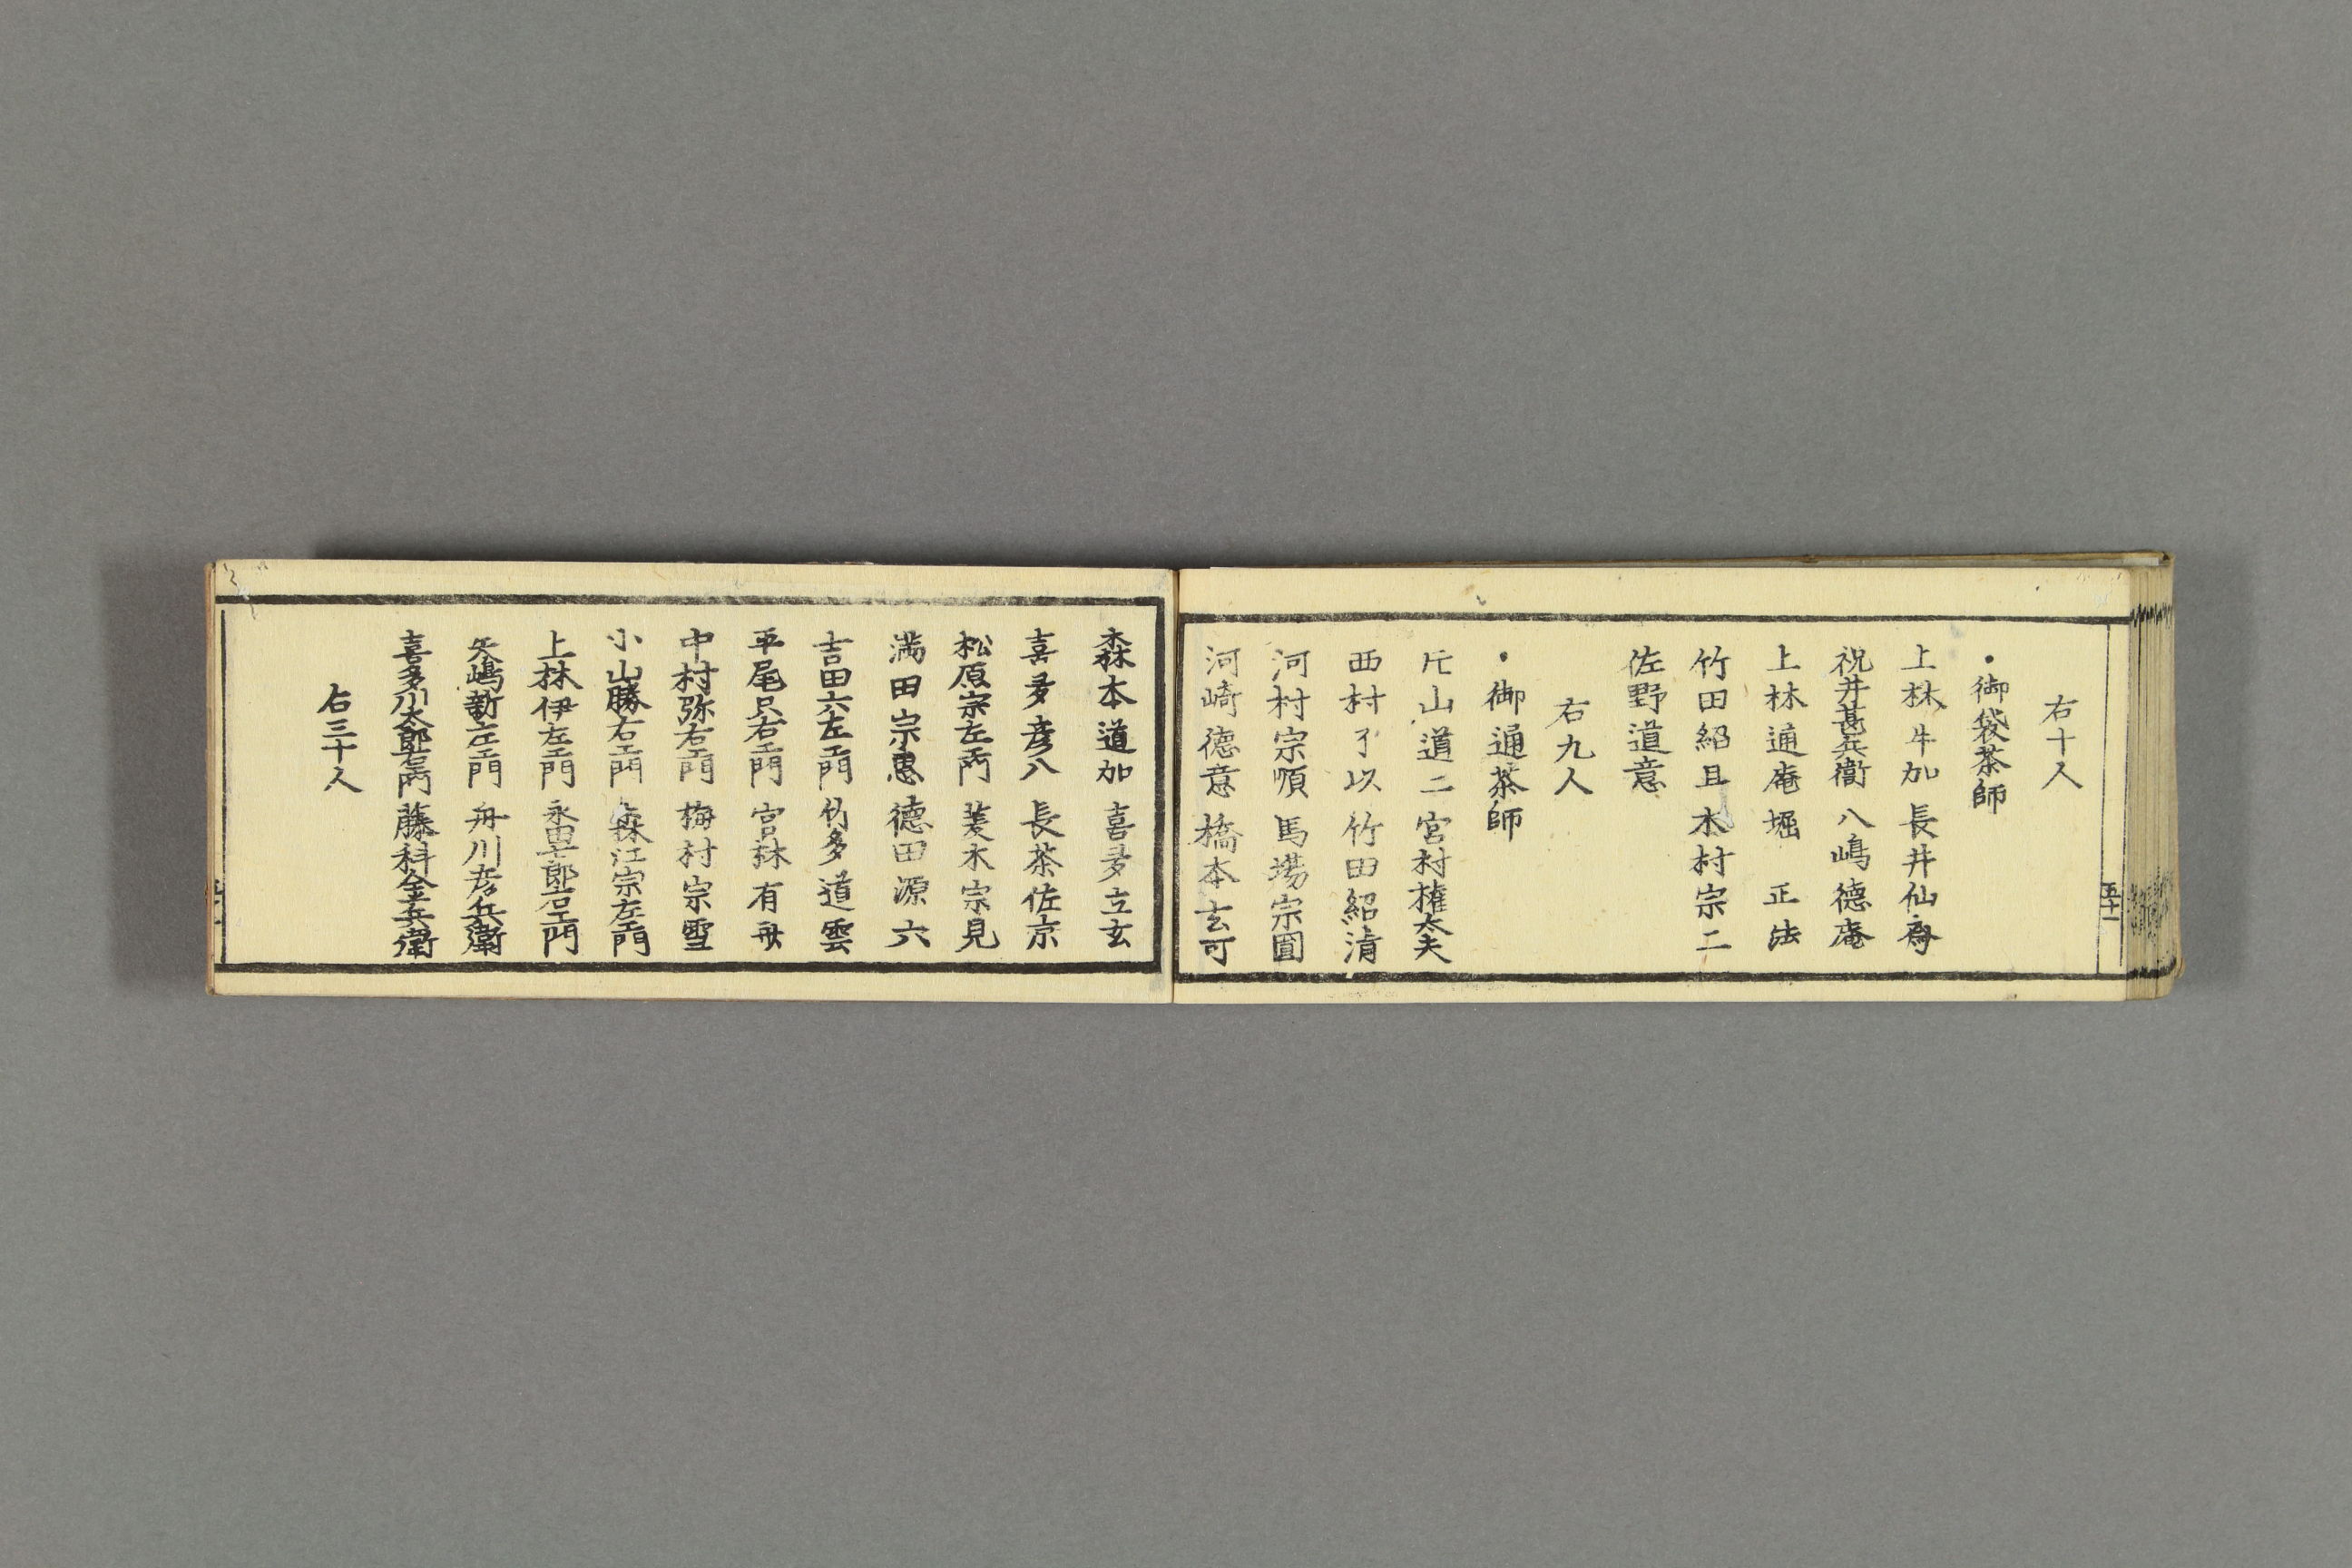 五十一
右十人
・御袋茶師
上林牛加 長井仙斎
祝井甚兵衛 八嶋德庵
上林通庵 堀正法
竹田紹且 木村宗二
佐野道意
右九人
・御通茶師
片山道二 宮村權太夫
西村了以 竹田紹清
河村宗順 馬場宗圓
河崎德意 橋本玄可
森本道加 喜多立玄
喜多彦八 長茶佐京
松原宗左門 菱木宗見
満田宗恵 德田源六
吉田六左エ門 竹多道雲
平尾只右エ門 宮林有舟
中村弥右エ門 梅村宗雪
小山勝右エ門 森江宗左エ門
上林伊左エ門 永田七郎右エ門
矢嶋新左エ門 舟川彦兵衛
喜多川太郎右門 藤科金兵衛
右三十人